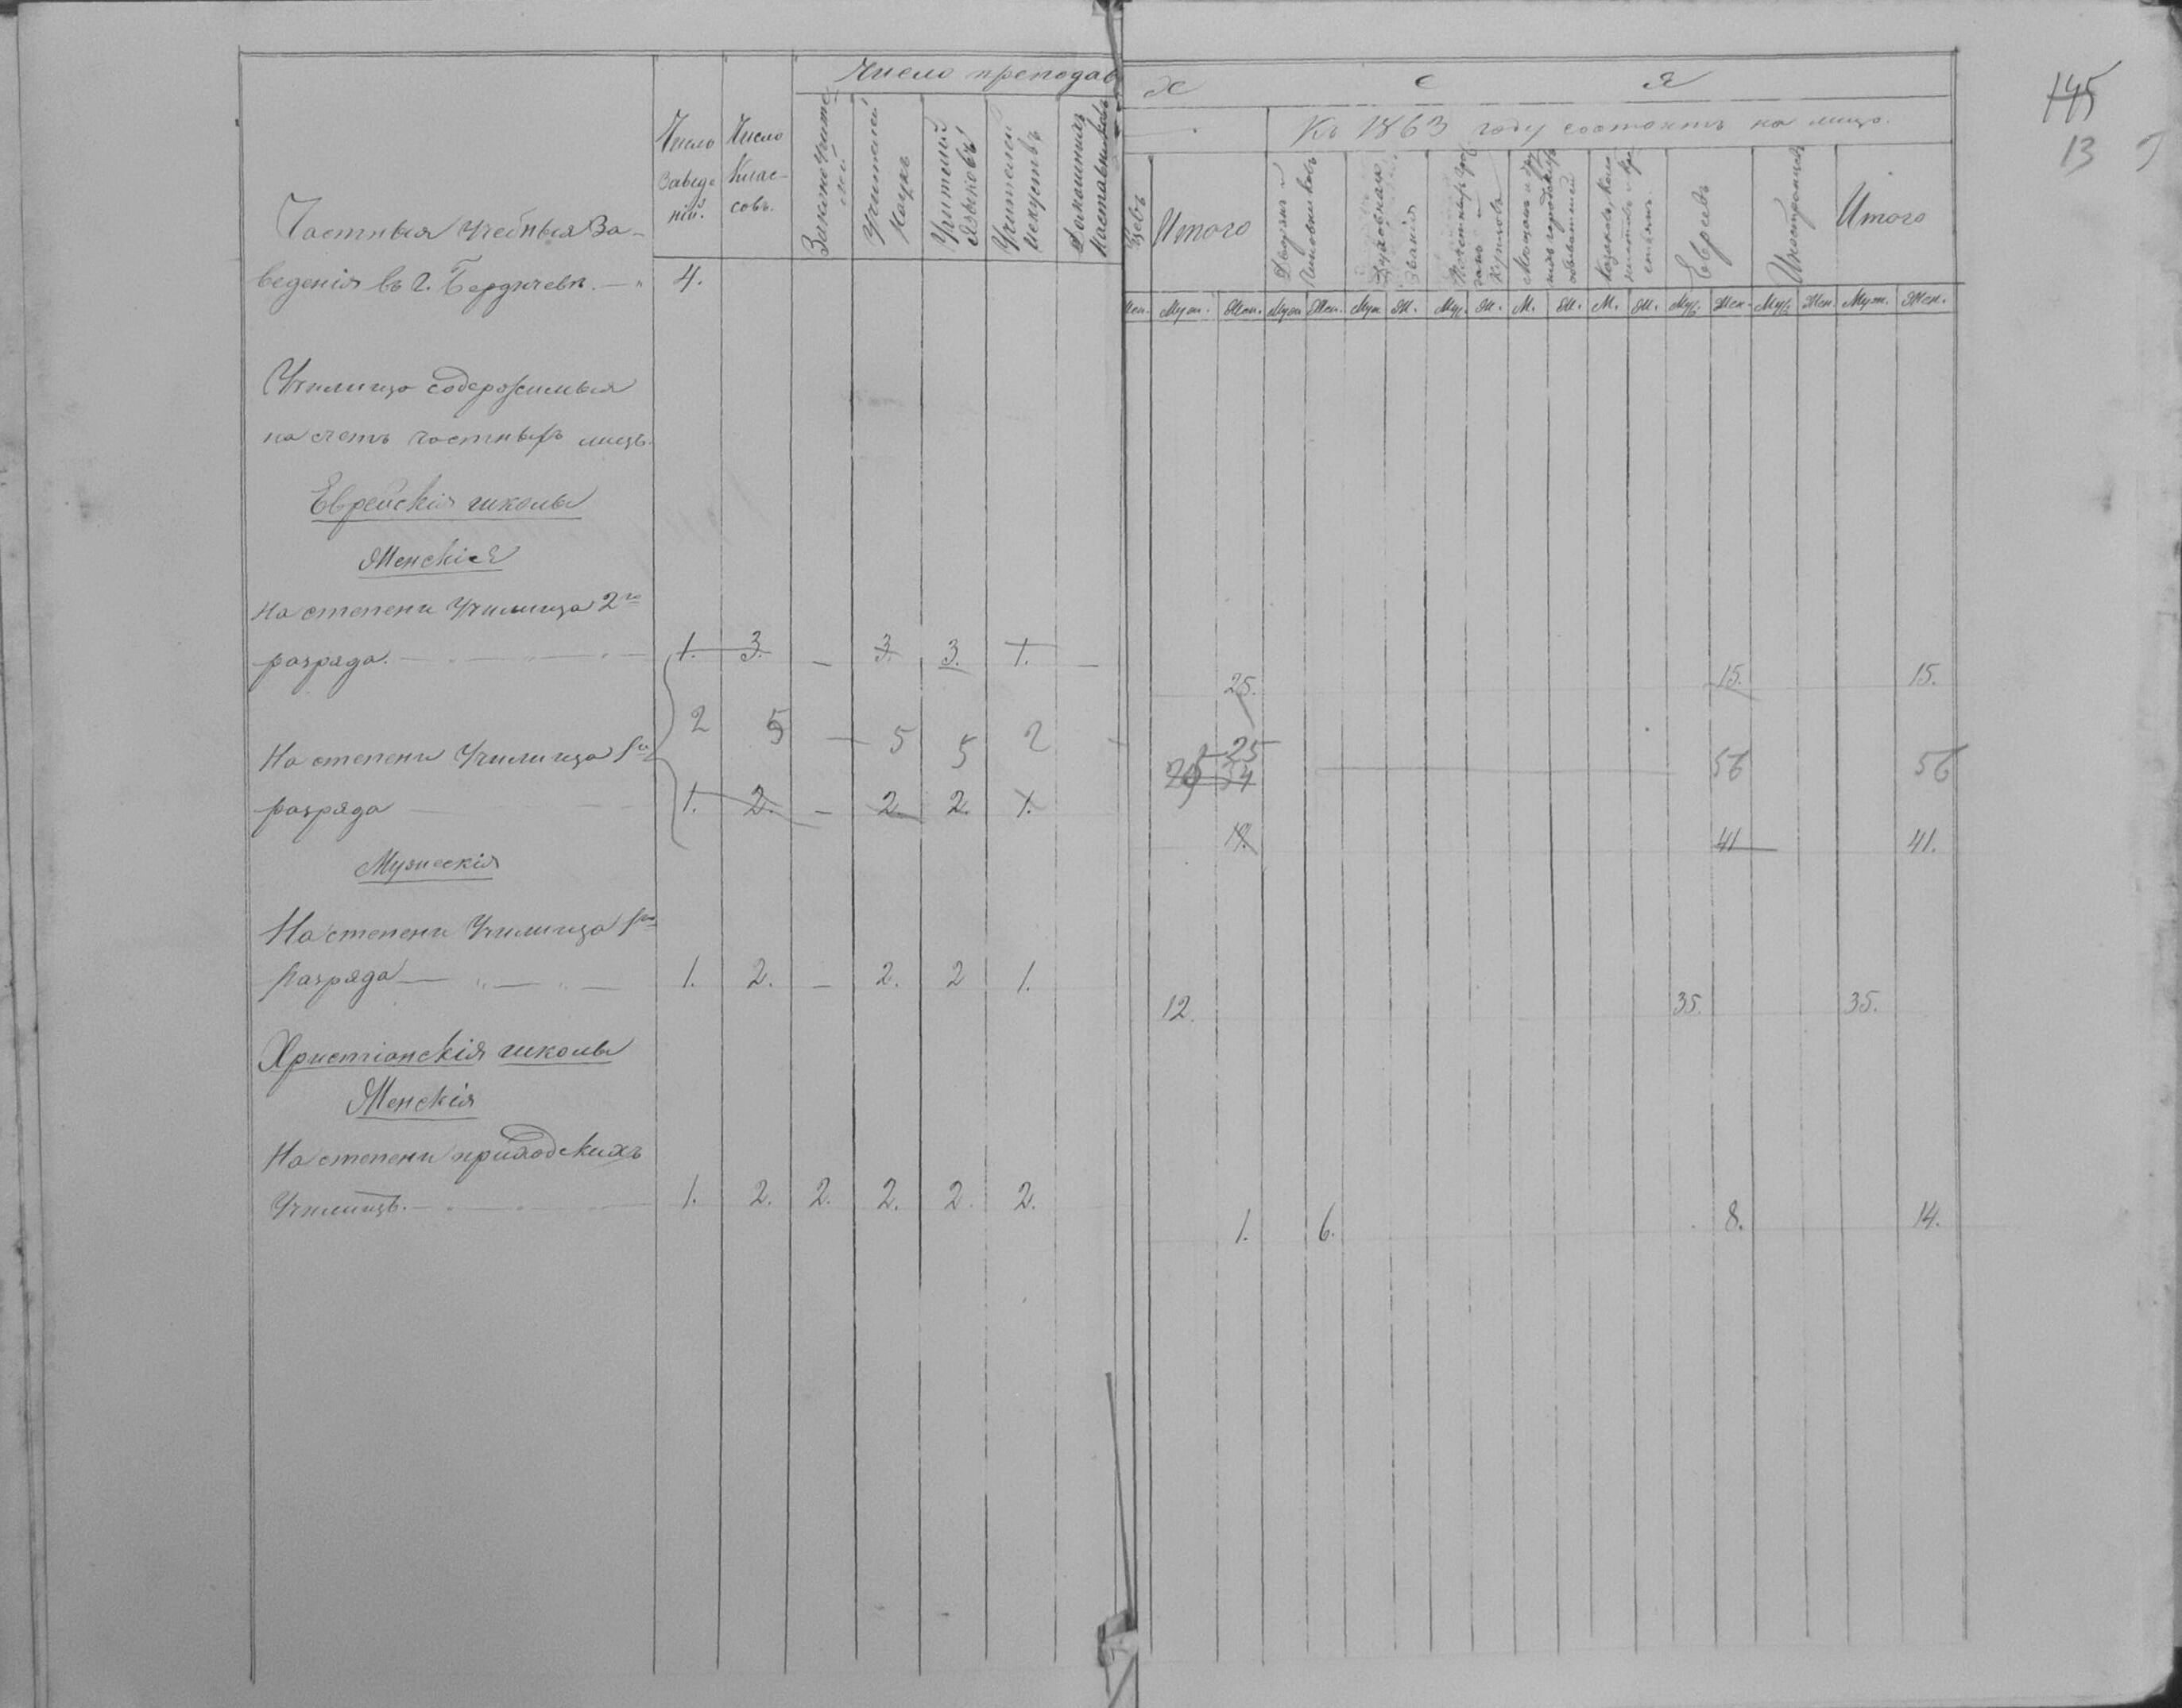 145
13
Число преподав
х с я
Къ 1863 году состоитъ на лицо.
Число Заведеній.
Число Классовъ.
Законоучителей
Учителей Наукъ
Учителей Языковъ
Учителей искуствъ
Домашнихъ Наставниковъ
цевъ
Итого
Дворянъ и Чиновниковъ
Духовнаго Званія
Евреевъ
Иностранцевъ
Итого
Жен. Муж. Жен. Муж. Жен. Муж. Ж. Муж. Ж. М. Ж. М. Ж. Муж. Жен. Муж. Жен. Муж. Жен.
Частныя Учебныя За-
веденія въ г. Бердичевѣ. — „ 4.
Училища содержимыя
на счетъ частныхъ лицъ.
Еврейскія школы
Женскіе
На степени Училища 2го
разряда. 1. 3. — 3. 3. 1. — 25. 15. 15.
2 5 — 5 5 2 25 56 56
34
На степени Училища 1го
разряда 1. 2. — 2. 2. 1. 41 41.
Мужескія
На степени Училища 1го
Разряда 1. 2. — 2. 2 1. 12. 35. 35.
Христіанскія школы
Женскія
На степени приходскихъ
Училищъ. 1. 2. 2. 2. 2. 2. 1. 6. 8. 14.